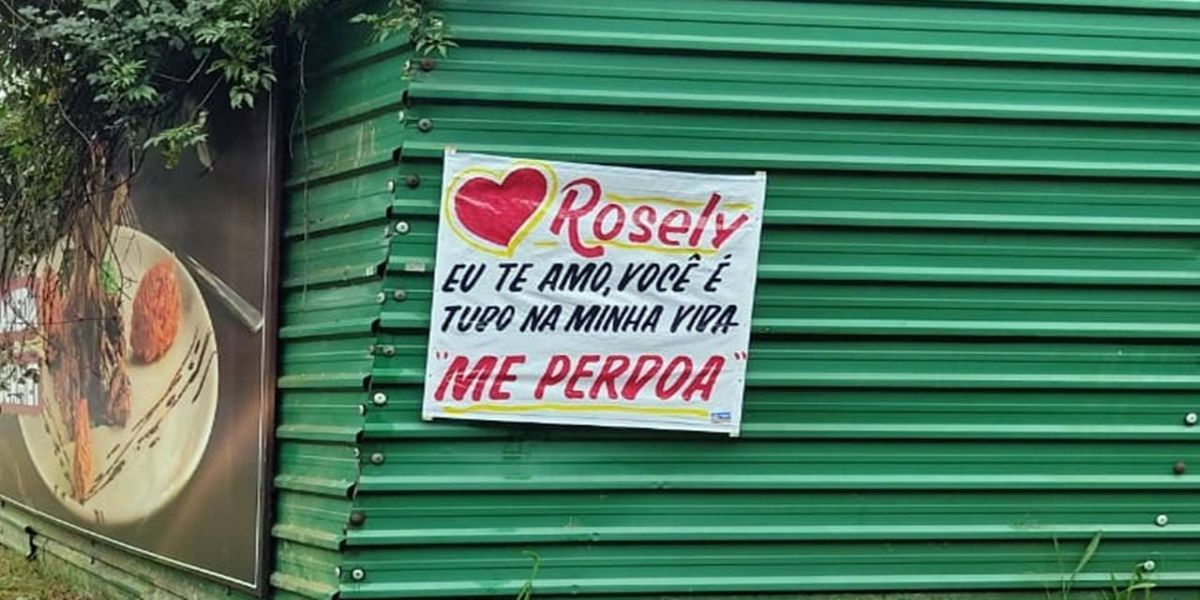 Rosely
EU TE AMO, VOCÊ É
TUDO NA MINHA VIDA
"ME PERDOA"